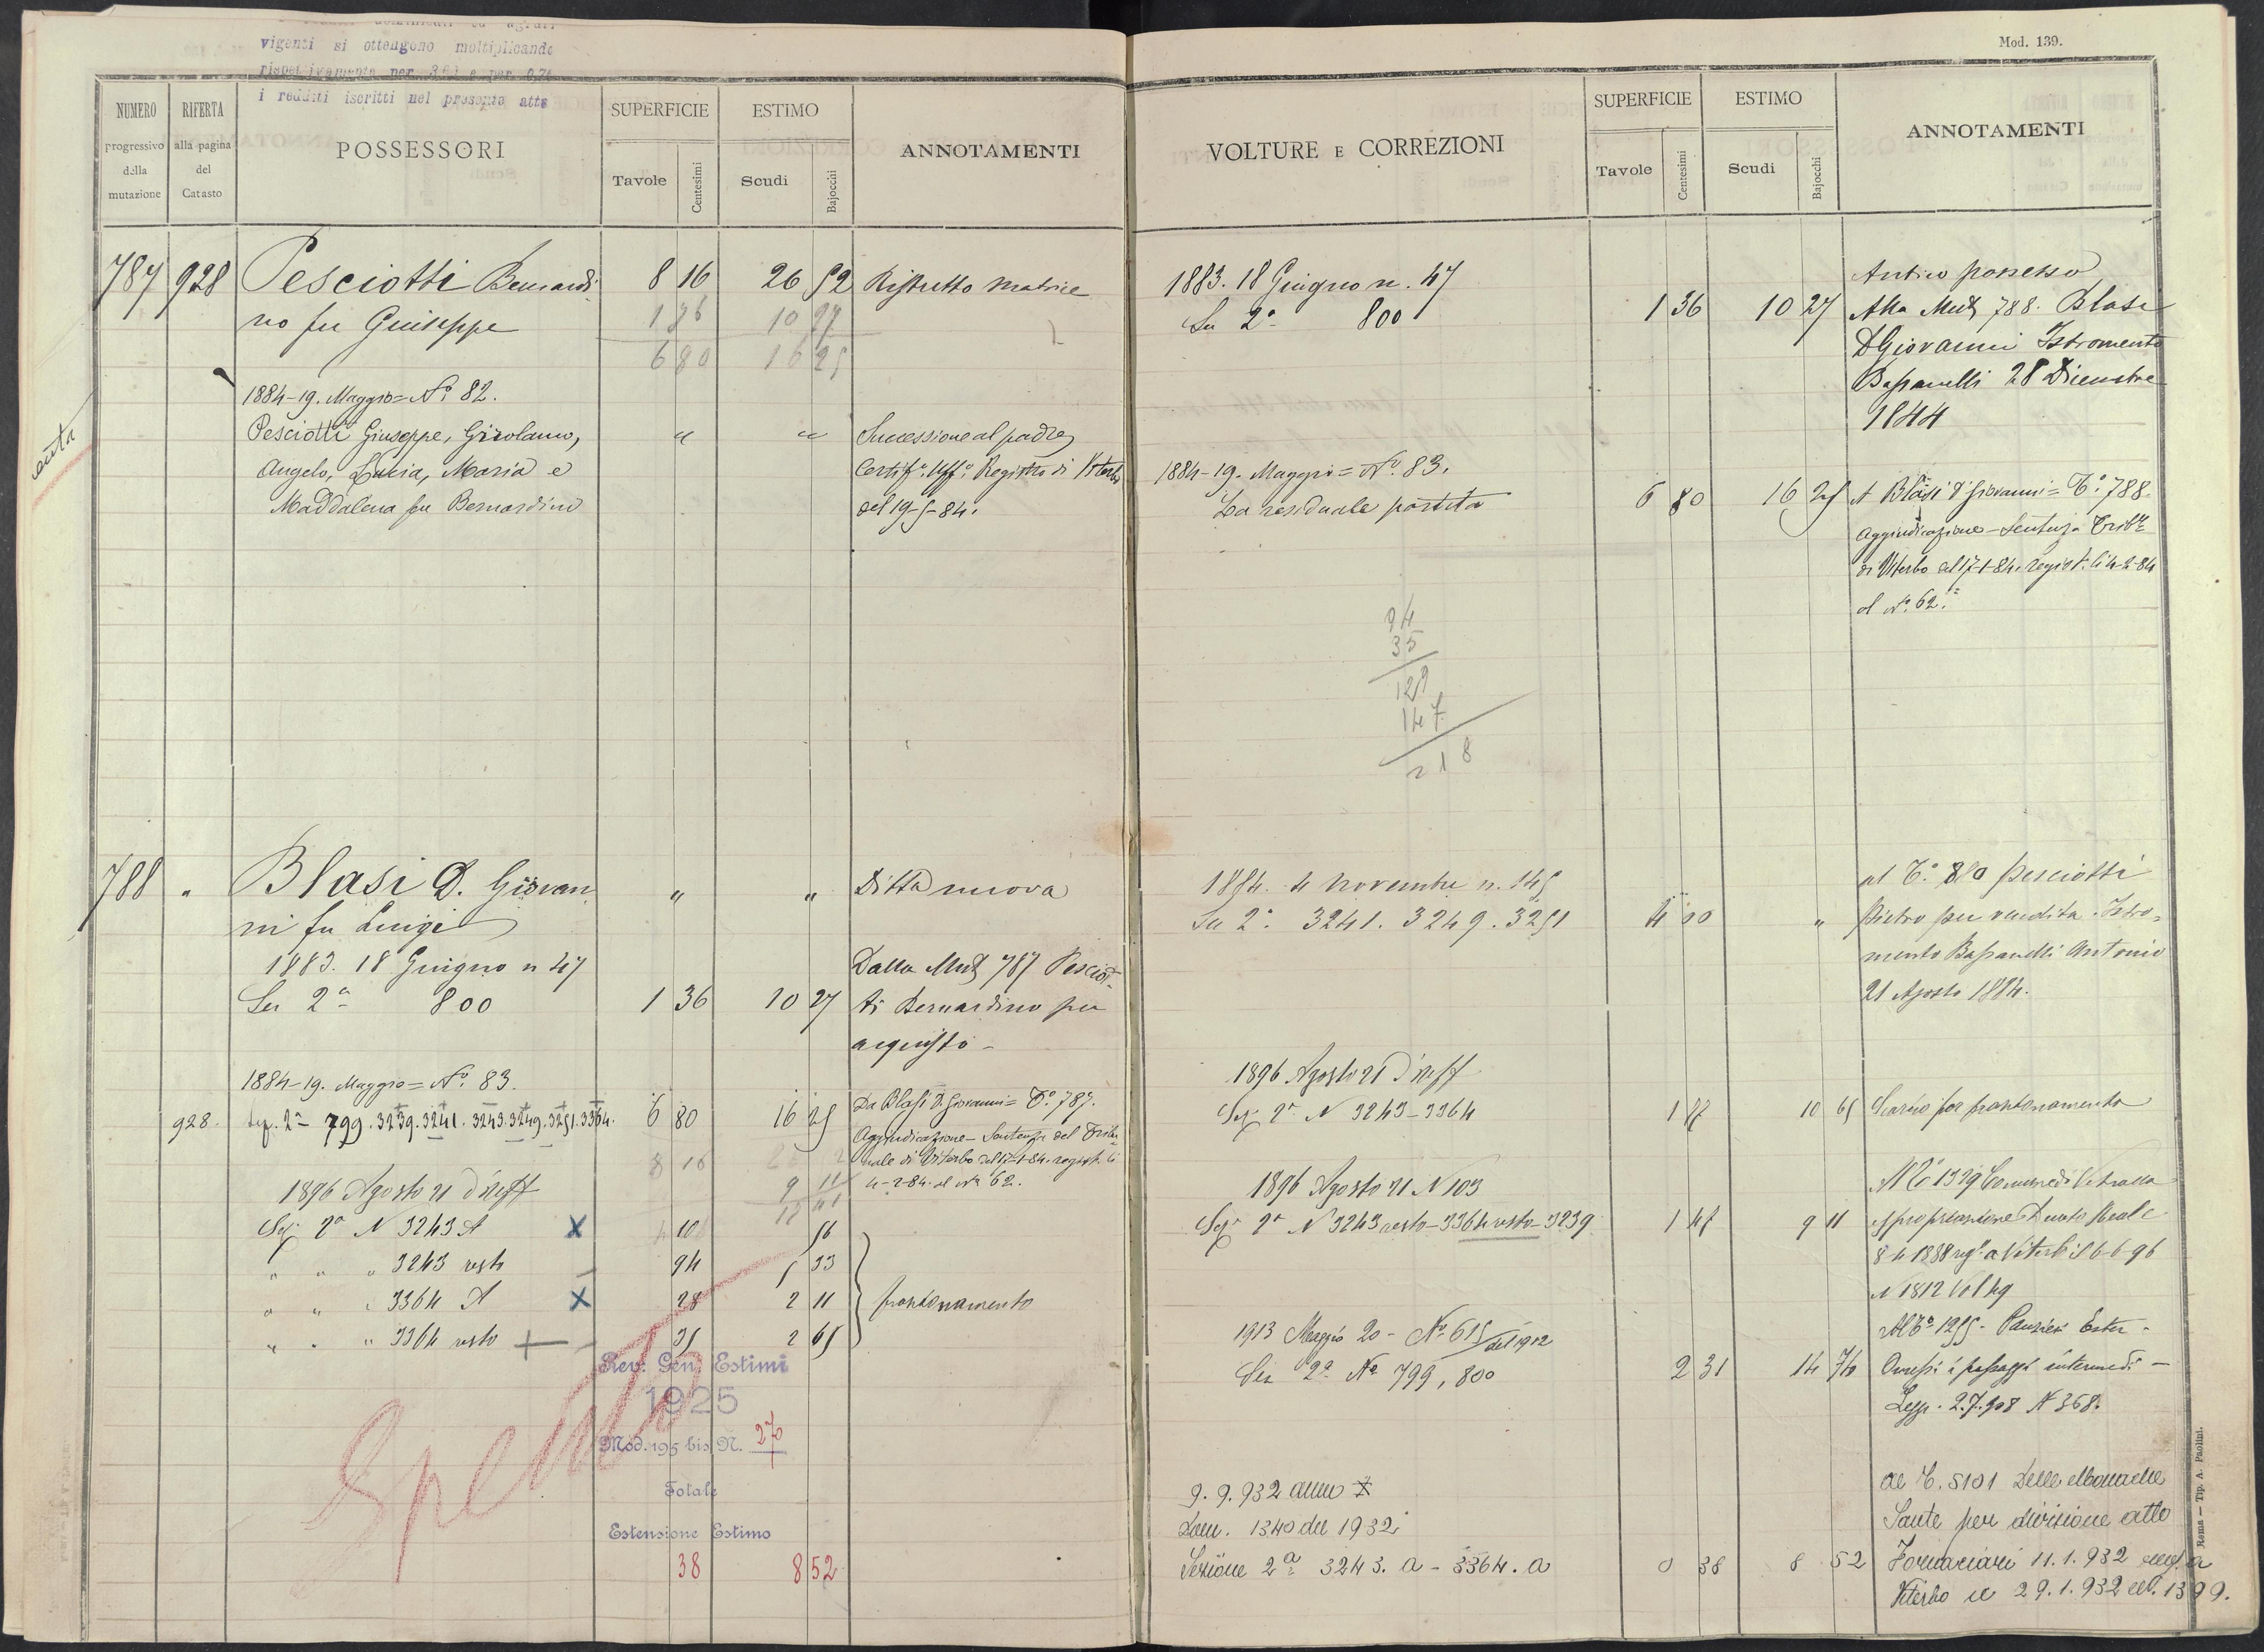 vigenti si ottengono moltiplicando
rispettivamente per
i redditi iscritti nel presente atto
Mod. 139.
NUMERO progressivo della mutazione
RIFERTA alla pagina del Catasto
POSSESSORI
SUPERFICIE
Tavole Centesimi
ESTIMO
Scudi Bajocchi
ANNOTAMENTI
787 928 Pesciotti Bernardi- 8 16 26 52 Ristretto Matrice
no fu Giuseppe 1 36 10 27
6 80 16 25
1884-19. Maggio = N.º 82.
Pesciotti Giuseppe, Girolamo, " " Successione al padre
Angelo, Lucia, Maria e Certifº. Uffº. Registro di Viterbo
Maddalena fu Bernardino del 19-5-84.
788 " Blasi D. Giovan- " " Ditta nuova
ni fu Luigi
1883. 18 Giugno n 47 Dalla Mutª 787 Pesciot-
Sez 2ª 800 1 36 10 27 ti Bernardino per
acquisto -
1884-19. Maggio = Nº. 83.
928. Sez. 2ª 799. 3239. 3241. 3243. 3249. 3251. 3364. 6 80 16 25 Da Blasi D. Giovanni = Tº. 787.
Aggiudicazione - Sentenza del Tribu-
8 16 nale di Viterbo del 17-1-84. regist. li
9 11 4-2-84. al Nº 62.
1896 Agosto 21 d'uff
Sez 2ª N 3243 A X 10
" " " 3243 resto 94 5 33
" " " 3364 A X 28 2 11 frazionamento
" " " 3364 resto 35 2 65
Rev. Gen. Estimi
1925
Mod. 195 bis N. 27
Spenta
Totale
Estensione Estimo
38 8 52
VOLTURE E CORREZIONI
SUPERFICIE
Tavole Centesimi
ESTIMO
Scudi Bajocchi
ANNOTAMENTI
1883. 18 Giugno n. 47 Antico possesso
Sez 2ª 800 1 36 10 27 Alla Mutª 788. Blasi
D Giovanni Istromento
Bassanelli 28 Dicembre
1844
1884-19. Maggio = Nº. 83.
La residuale partita 6 80 16 25 A Blasi D Giovanni = Tº. 788.
Aggiudicazione - Sentenza Trible
di Viterbo del 17-1-84. regist. li 4-2-84
al Nº. 62.
94
35
129
147
218
1884. 4 novembre n. 145 al Tº. 810 Pesciotti
Sez 2ª. 3241. 3249. 3251 4 00 " Pietro per vendita. Istro-
mento Bassanelli Antonio
21 Agosto 1884.
1896 Agosto 21 d'uff
Sez 2ª N 3243-3364 1 10 65 Scarico per frazionamento
1896 Agosto 21 N 103 Al Tº 1329 Comune di Vetralla
Sez 2ª N 3243 resto - 3364 resto - 3239 1 47 9 11 espropriazione Decreto Reale
8 4 1888 regº. a Viterbo il 6-6-96
N 1812 Vol 49
1913 Maggio 20 - Nº. 615 del 1912 Al Tº 1255 - Ester -
Sez 2ª Nº 799, 800 2 31 14 76 Omessi i passaggi intermedi -
Legge. 2.7.908 N 368.
9. 9. 932 anno X al T. 5101 Delle Monache
Dom. 1340 del 1932 Sante per divisione atto
Sezione 2ª 3243. a - 3364. a 0 38 8 52 Fornaciari 11. 1. 932 reg. a
Viterbo il 29. 1. 932 al n. 1399.
Roma — Tip. A. Paolini.